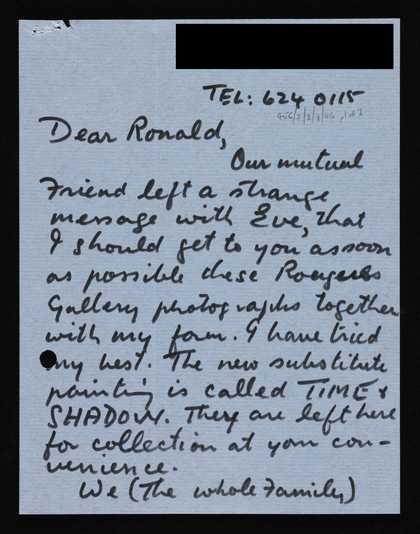 TEL: 624 0115
Dear Ronald,
Our mutual
Friend left a strange
message with Eve, that
I should get to you as soon
as possible these Rogues
Gallery photographs together
with my form. I have tried
my best. The new substitute
painting is called TIME &
SHADOW. They are left here
for collection at your con-
venience.
We (The whole Family)